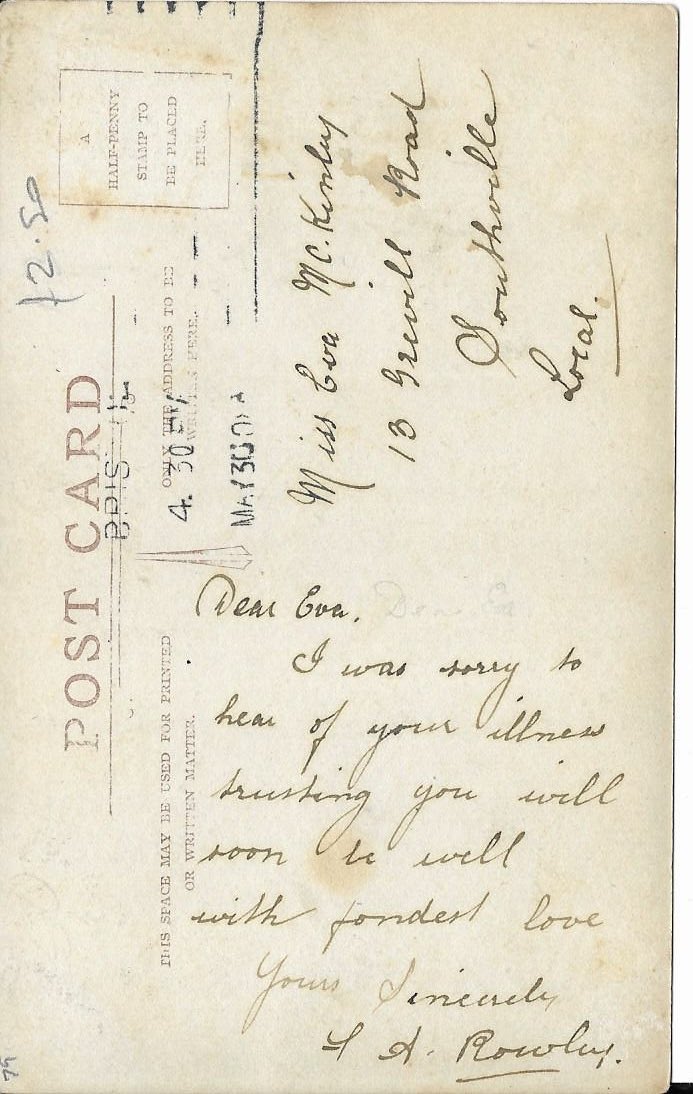 POST CARD
A
HALF-PENNY
STAMP TO
BE PLACED
HERE.
£2.50
THIS SPACE MAY BE USED FOR PRINTED
OR WRITTEN MATTER.
ONLY THE ADDRESS TO BE
WRITTEN HERE.
4.30 PM
MAY 30
Miss Eva McKinley
13 Grevill Road
Southville
Local.
Dear Eva.
I was sorry to
hear of your illness
trusting you will
soon be well
with fondest love
Yours Sincerely
A. Rowley.